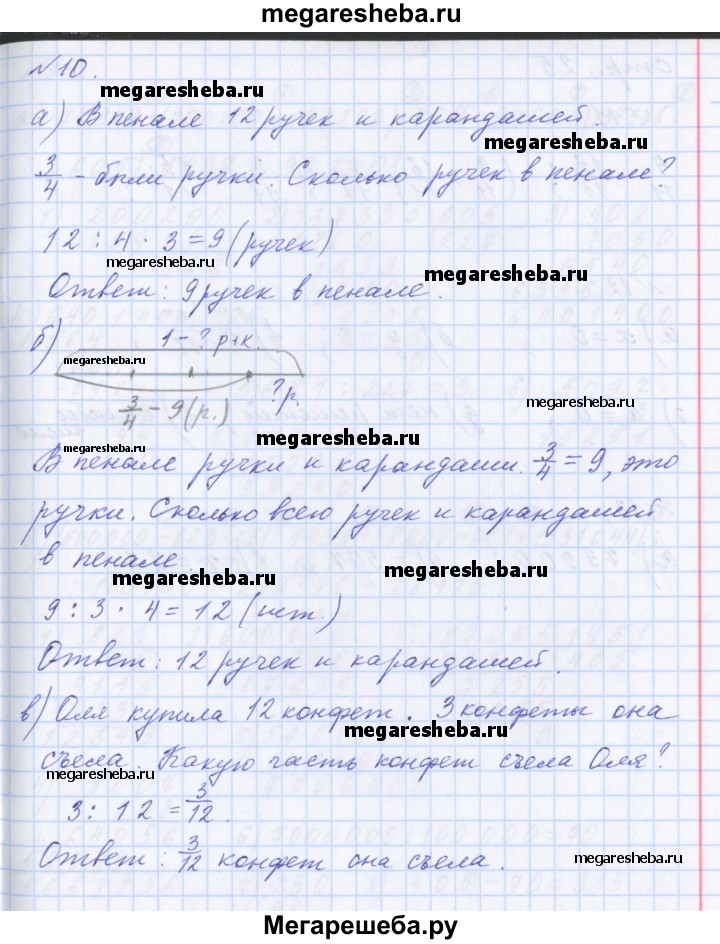 megaresheba.ru
№10.
megaresheba.ru
а) В пенале 12 ручек и карандашей.
megaresheba.ru
3/4 - были ручки. Сколько ручек в пенале?
12 : 4 · 3 = 9 (ручек)
megaresheba.ru
megaresheba.ru
Ответ: 9 ручек в пенале.
б) 1 - ? р+к.
megaresheba.ru
?р.
3/4 - 9 (р.)
megaresheba.ru
megaresheba.ru
megaresheba.ru
В пенале ручки и карандаши. 3/4 = 9, это
ручки. Сколько всего ручек и карандашей
в пенале
megaresheba.ru
megaresheba.ru
9 : 3 · 4 = 12 (шт.)
Ответ: 12 ручек и карандашей.
в) Оля купила 12 конфет. 3 конфеты она
megaresheba.ru
съела. Какую часть конфет съела Оля?
megaresheba.ru
3 : 12 = 3/12.
Ответ: 3/12 конфет она съела.
megaresheba.ru
Мегарешеба.ру